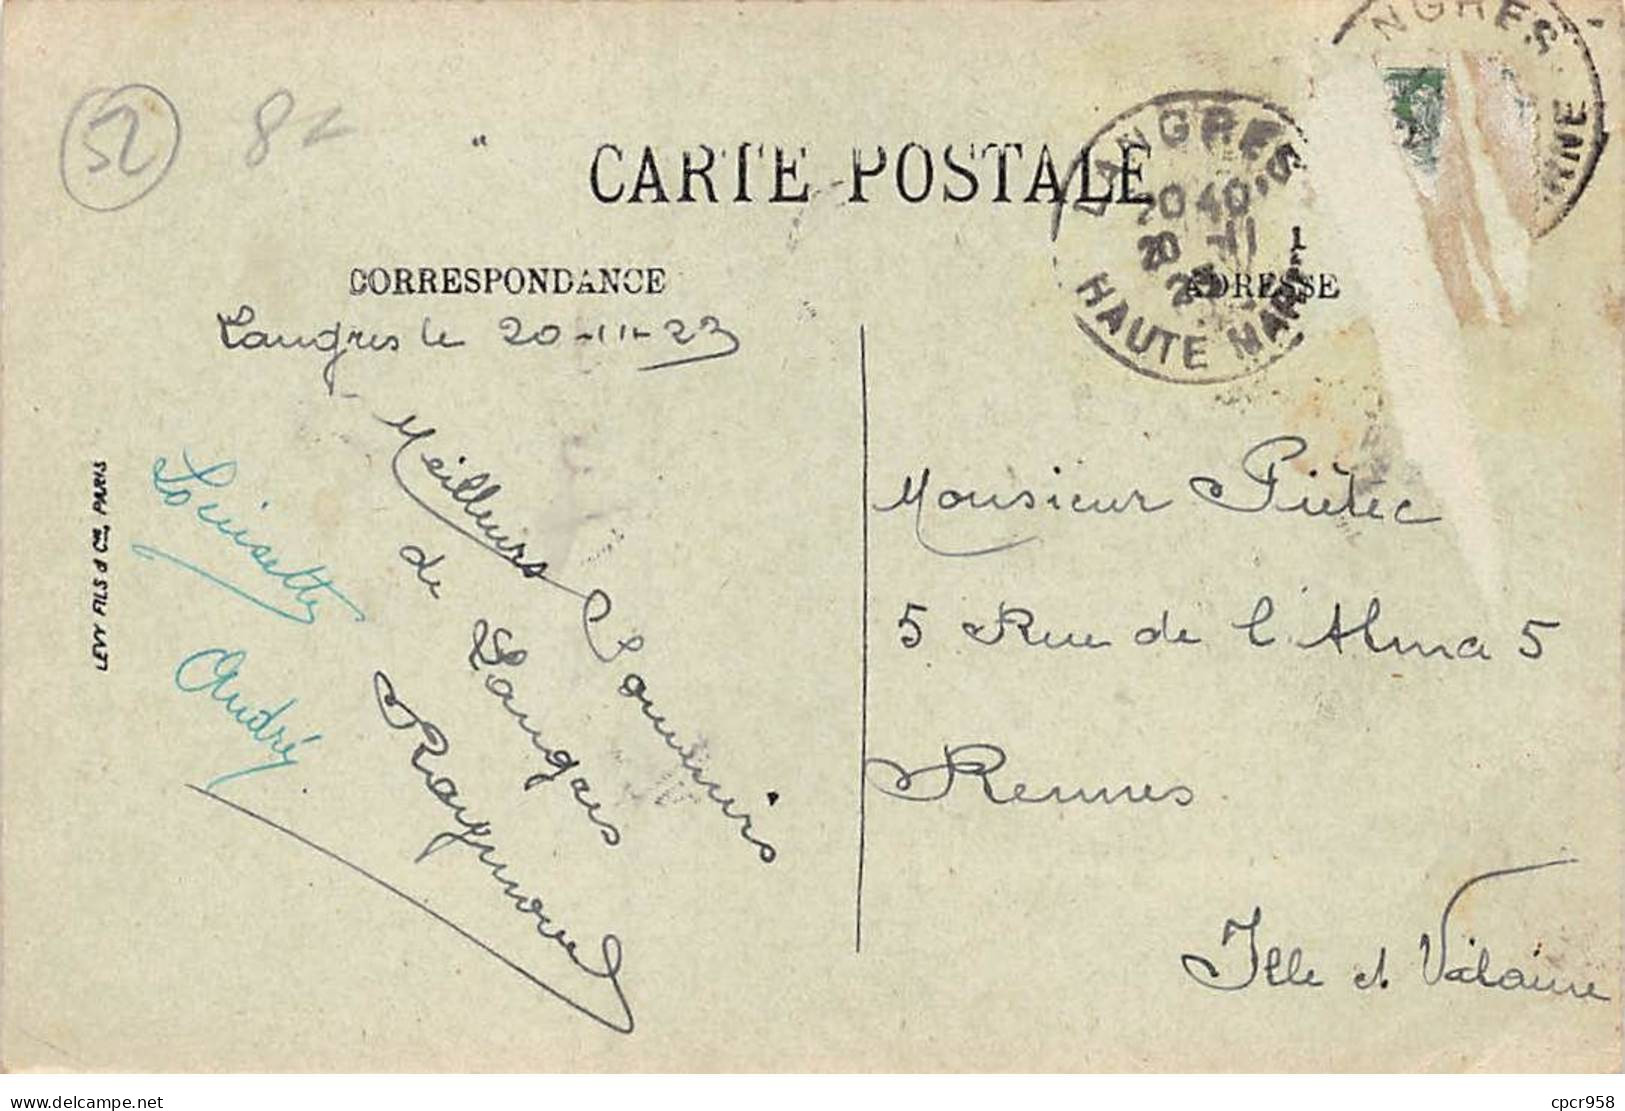 52
8
CARTE POSTALE
LANGRES
20 40
20 -11
HAUTE MARNE
NGRES
RNE
CORRESPONDANCE
ADRESSE
Langres le 20-11-23
Meilleurs Souvenirs
de Langres
Raymond
Louisette
André
LEVY FILS & Cie, PARIS
Monsieur Piétec
5 Rue de l'Alma 5
Rennes
Ille et Vilaine
cpcr958